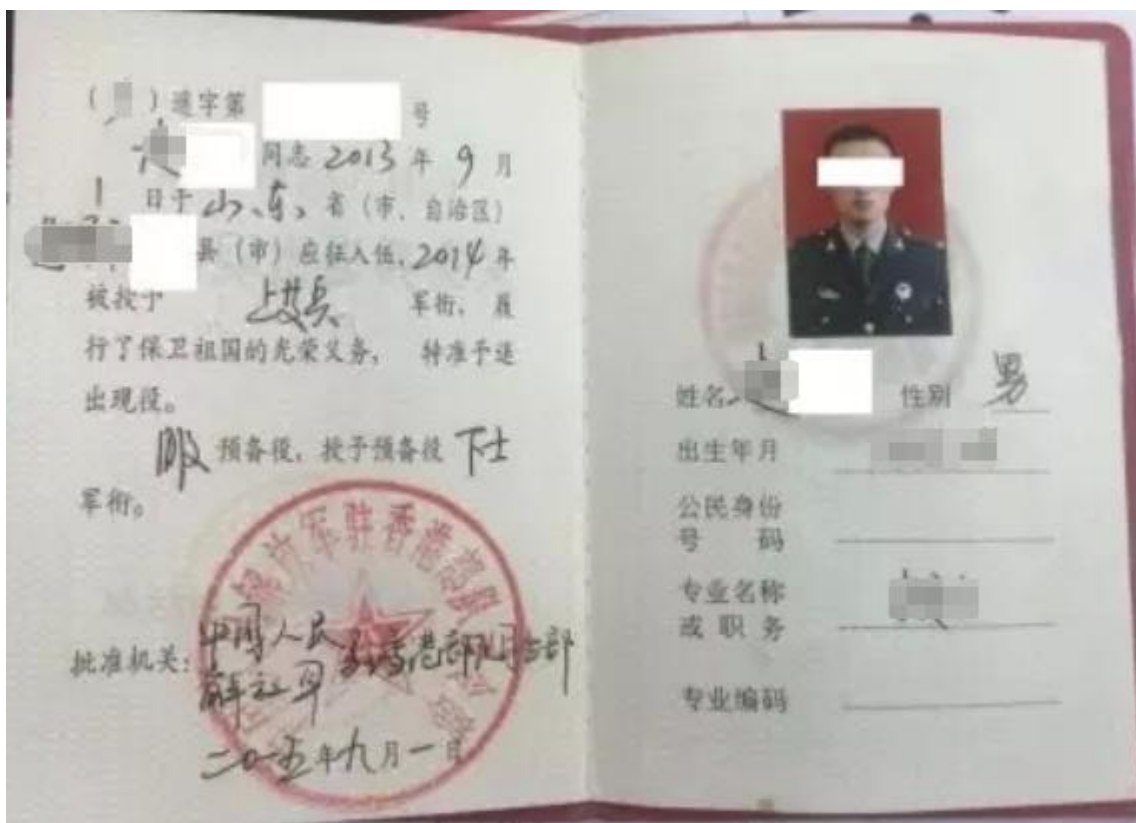 ( ) 退字第 号
同志 2013 年 9 月
1 日于 山东 省（市、自治区）
县（市）应征入伍，2014 年
被授予 上等兵 军衔，履
行了保卫祖国的光荣义务， 特准予退
出现役。
服 预备役，授予预备役 下士
军衔。
放军驻香港部队
批准机关：中国人民
解放军 驻香港部队司令部
二〇一五年九月一日
姓名 性别 男
出生年月
公民身份
号 码
专业名称
或 职 务
专业编码